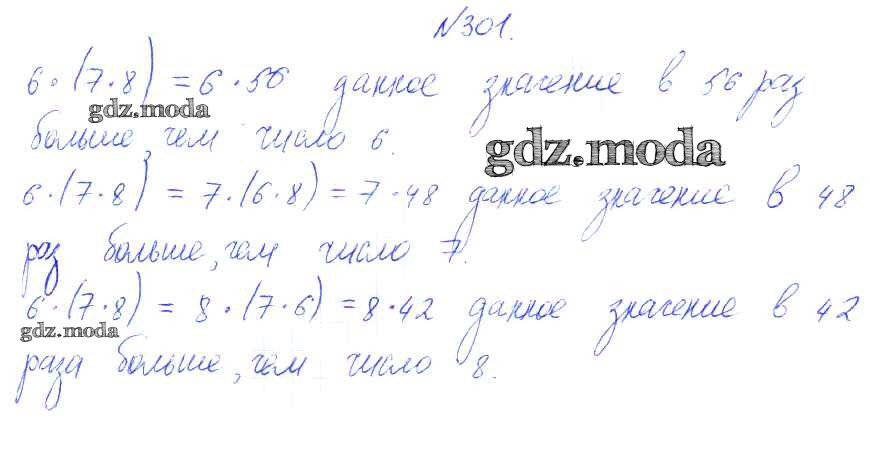 №301.
6·(7·8) = 6·56 данное значение в 56 раз
gdz.moda
больше, чем число 6.
gdz.moda
6·(7·8) = 7·(6·8) = 7·48 данное значение в 48
раз больше, чем число 7.
6·(7·8) = 8·(7·6) = 8·42 данное значение в 42
gdz.moda
раза больше, чем число 8.